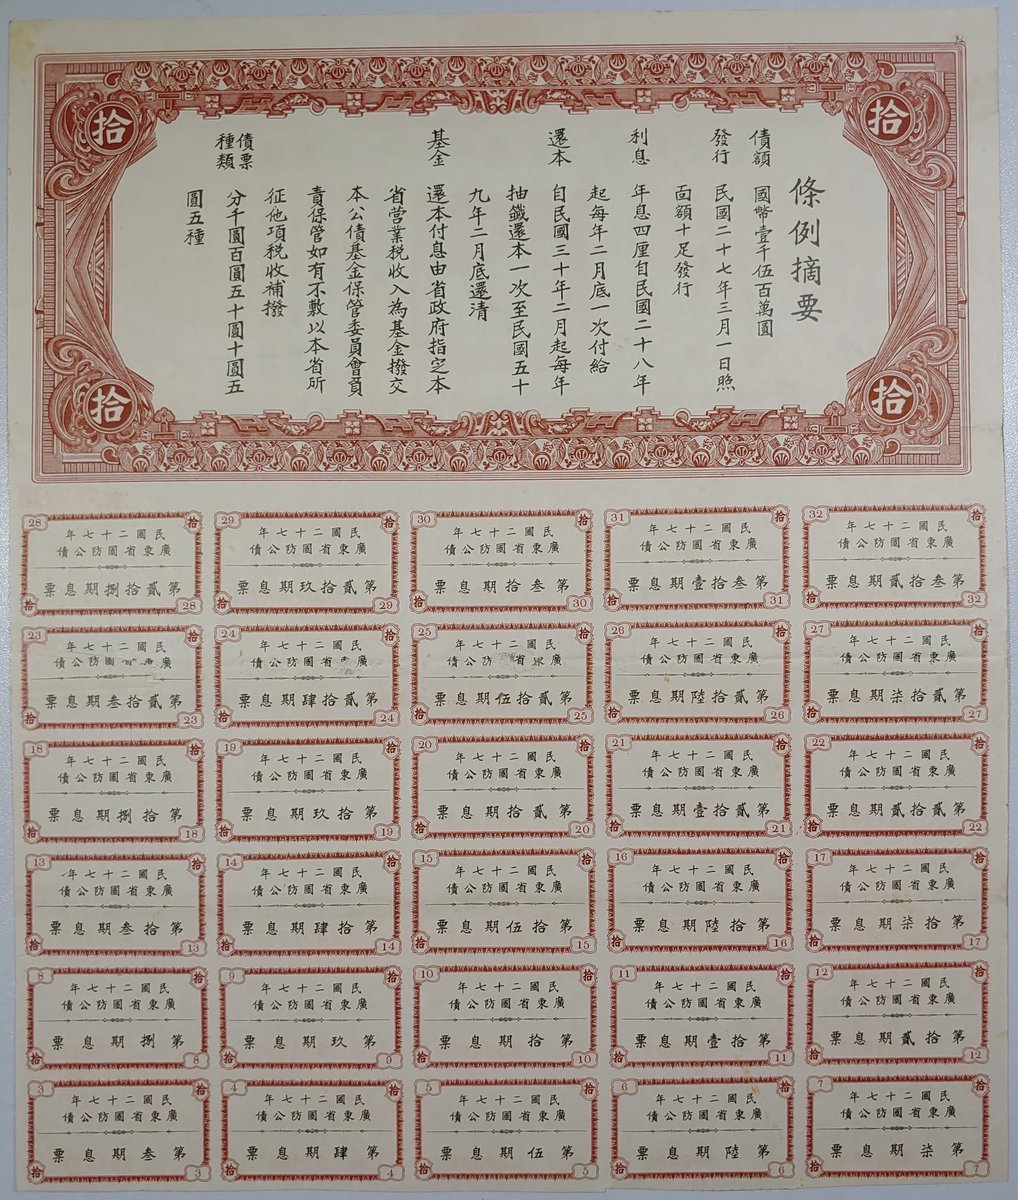 拾
拾
條例摘要
債額 國幣壹千伍百萬圓
發行 民國二十七年三月一日照
面額十足發行
利息 年息四厘自民國二十八年
起每年二月底一次付給
還本 自民國三十年二月起每年
抽籤還本一次至民國五十
九年二月底還清
基金 還本付息由省政府指定本
省營業稅收入為基金撥交
本公債基金保管委員會負
責保管如有不敷以本省所
征他項稅收補撥
債票種類 分千圓百圓五十圓十圓五
圓五種
拾
拾
28 拾
民國二十七年
廣東省國防公債
第貳拾捌期息票
拾 28
29 拾
民國二十七年
廣東省國防公債
第貳拾玖期息票
拾 29
30 拾
民國二十七年
廣東省國防公債
第叁拾期息票
拾 30
31 拾
民國二十七年
廣東省國防公債
第叁拾壹期息票
拾 31
32 拾
民國二十七年
廣東省國防公債
第叁拾貳期息票
拾 32
23 拾
民國二十七年
廣東省國防公債
第貳拾叁期息票
拾 23
24 拾
民國二十七年
廣東省國防公債
第貳拾肆期息票
拾 24
25 拾
民國二十七年
廣東省國防公債
第貳拾伍期息票
拾 25
26 拾
民國二十七年
廣東省國防公債
第貳拾陸期息票
拾 26
27 拾
民國二十七年
廣東省國防公債
第貳拾柒期息票
拾 27
18 拾
民國二十七年
廣東省國防公債
第拾捌期息票
拾 18
19 拾
民國二十七年
廣東省國防公債
第拾玖期息票
拾 19
20 拾
民國二十七年
廣東省國防公債
第貳拾期息票
拾 20
21 拾
民國二十七年
廣東省國防公債
第貳拾壹期息票
拾 21
22 拾
民國二十七年
廣東省國防公債
第貳拾貳期息票
拾 22
13 拾
民國二十七年
廣東省國防公債
第拾叁期息票
拾 13
14 拾
民國二十七年
廣東省國防公債
第拾肆期息票
拾 14
15 拾
民國二十七年
廣東省國防公債
第拾伍期息票
拾 15
16 拾
民國二十七年
廣東省國防公債
第拾陸期息票
拾 16
17 拾
民國二十七年
廣東省國防公債
第拾柒期息票
拾 17
8 拾
民國二十七年
廣東省國防公債
第捌期息票
拾 8
9 拾
民國二十七年
廣東省國防公債
第玖期息票
拾 9
10 拾
民國二十七年
廣東省國防公債
第拾期息票
拾 10
11 拾
民國二十七年
廣東省國防公債
第拾壹期息票
拾 11
12 拾
民國二十七年
廣東省國防公債
第拾貳期息票
拾 12
3 拾
民國二十七年
廣東省國防公債
第叁期息票
拾 3
4 拾
民國二十七年
廣東省國防公債
第肆期息票
拾 4
5 拾
民國二十七年
廣東省國防公債
第伍期息票
拾 5
6 拾
民國二十七年
廣東省國防公債
第陸期息票
拾 6
7 拾
民國二十七年
廣東省國防公債
第柒期息票
拾 7